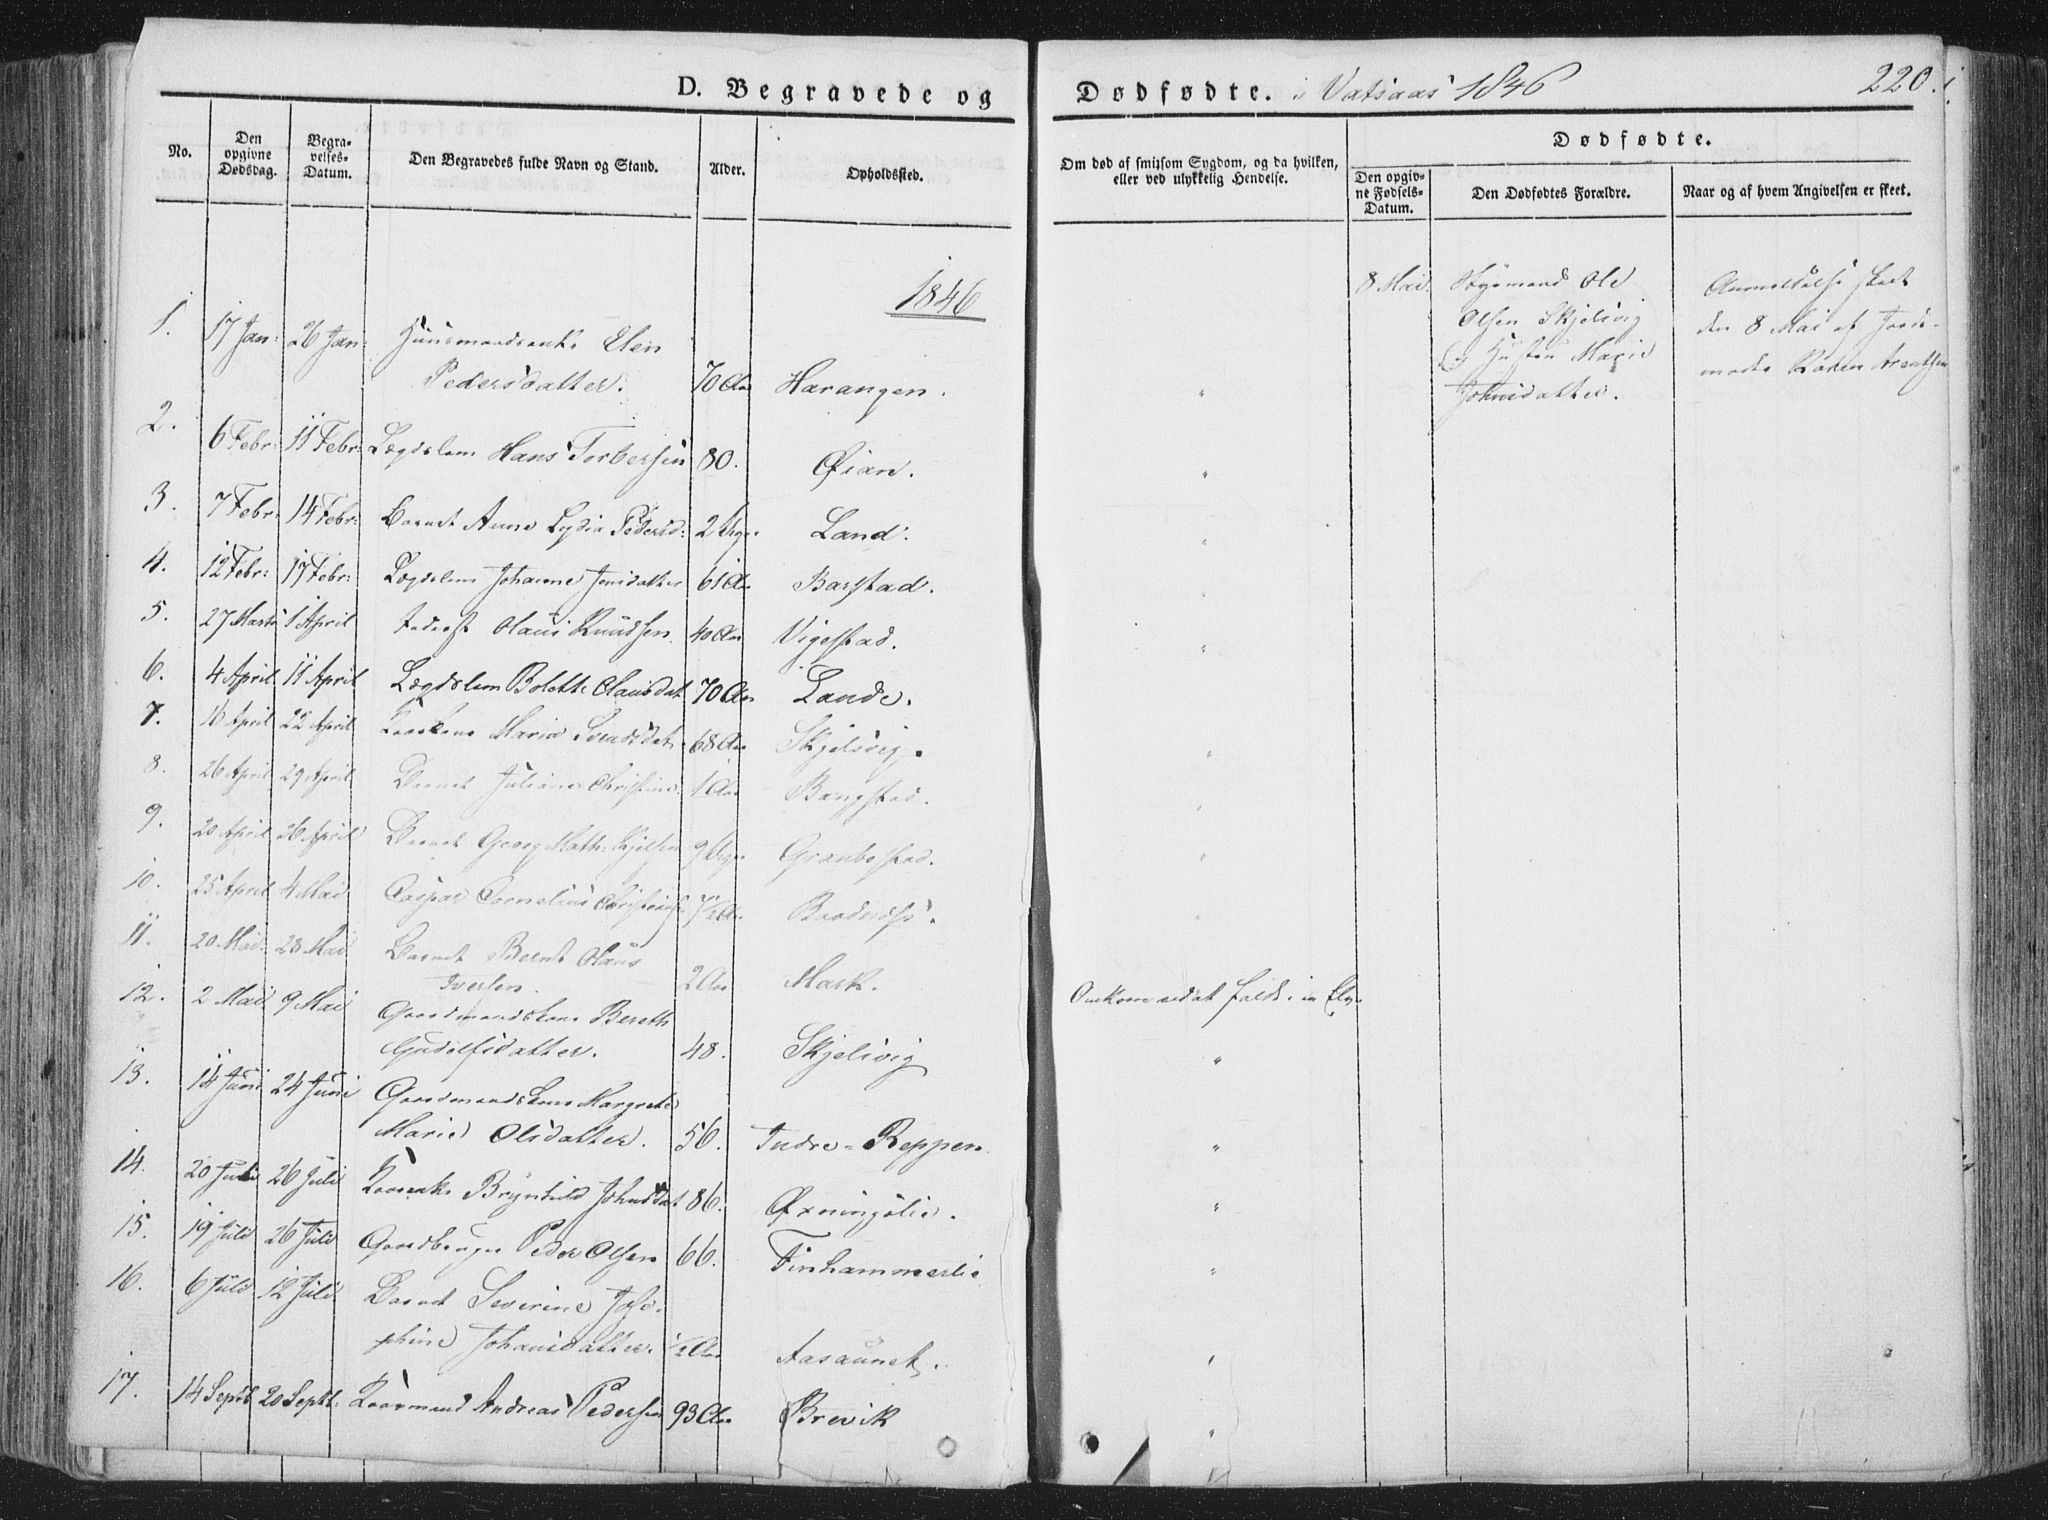 D. Begravede og
Dødfødte. i Vatsaas 1846
220.
No.
Den opgivne Dødsdag.
Begravelses-Datum.
Den Begravedes fulde Navn og Stand.
Alder.
Opholdssted.
Om død af smitsom Sygdom, og da hvilken, eller ved ulykkelig Hendelse.
Dødfødte.
Den opgivne Fødsels-Datum.
Den Dødfødtes Forældre.
Naar og af hvem Angivelsen er skeet.
1846
1. 17 Jan: 26 Jan: Huusmandsenke Elen
Pedersdatter. 70 Aar Harangen. "
2. 6 Febr: 11 Febr: Lægdslem Hans Torbersen 80. Øian. "
3. 7 Febr: 14 Febr: Barnet Anne Lydia Pedersd: 2 Uger Land. "
4. 12 Febr: 17 Febr: Lægdslem Johanne Jensdatter 61 Aar Barstad. "
5. 27 Marts 1 April Inderst Claus Knudsen 40 Aar Vigestad. "
6. 4 April 11 April Lægdslem Boleth Clausdat 70 Aar Lande.
7. 16 April 22 April Kaarkone Maria Svendsdat 68 Aar Skjelsvig. "
8. 26 April 29 April Barnet Juliane Christine 1 Aar Bangstad. "
9. 20 April 26 April Barnet Georg Math: Kjelsen 9 Uger Granbostad. "
10. 25 April 4 Mai Caspar Cornelius ½ Aar "
11. 20 Mai 28 Mai Barnet Bernt Claus
Iversen. 2 Aar Mark.
12. 2 Mai 9 Mai Gaardmandskone Bereth Omkom ved at falde i en Elv.
Gudolfsdatter. 48. Skjelsvig "
13. 14 Juni 24 Juni Gaardmandskone Margrete
Marie Olsdatter. 56. Indre-Reppen. "
14. 20 Juli 26 Juli Kaarenke Brynhild Johnsdat 86. Øxningslie. "
15. 19 Juli 26 Juli Gaardbruger Peder Olsen 66. Finhammerlie "
16. 6 Juli 12 Juli Barnet Severine Jose-
phine Johansdatter. ½ Aar Aasaunet. "
17. 14 Septb 20 Septb: Kaarmand Andreas Pedersen 93 Aar Brevik "
8 Mai. Ole
Olsen Skjelsvig
og Hustru Marie
Johnsdatter.
Anmeldelse skeet
den 8 Mai af Jorde-
moder Karen Arentzen